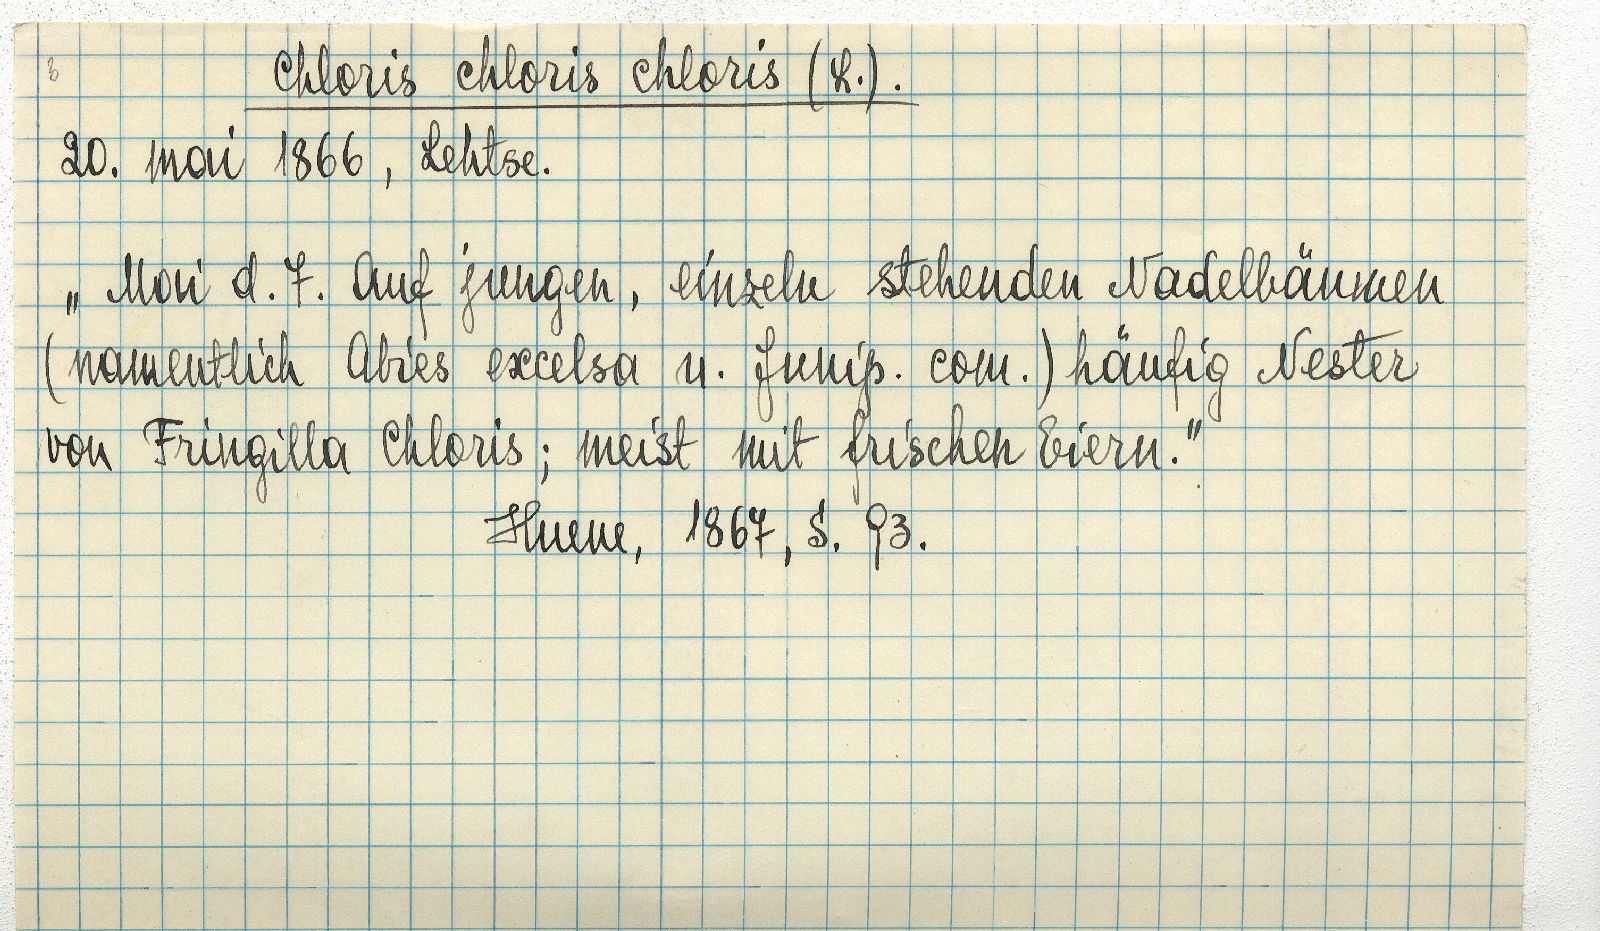 3
Chloris chloris chloris (L.).
20. mai 1866, Lehtse.
„Mai d. 7. Auf jungen, einzeln stehenden Nadelbäumen
(namentlich Abies excelsa u. Junip. com.) häufig Nester
von Fringilla Chloris; meist mit frischen Eiern."
Huene, 1867, S. 93.